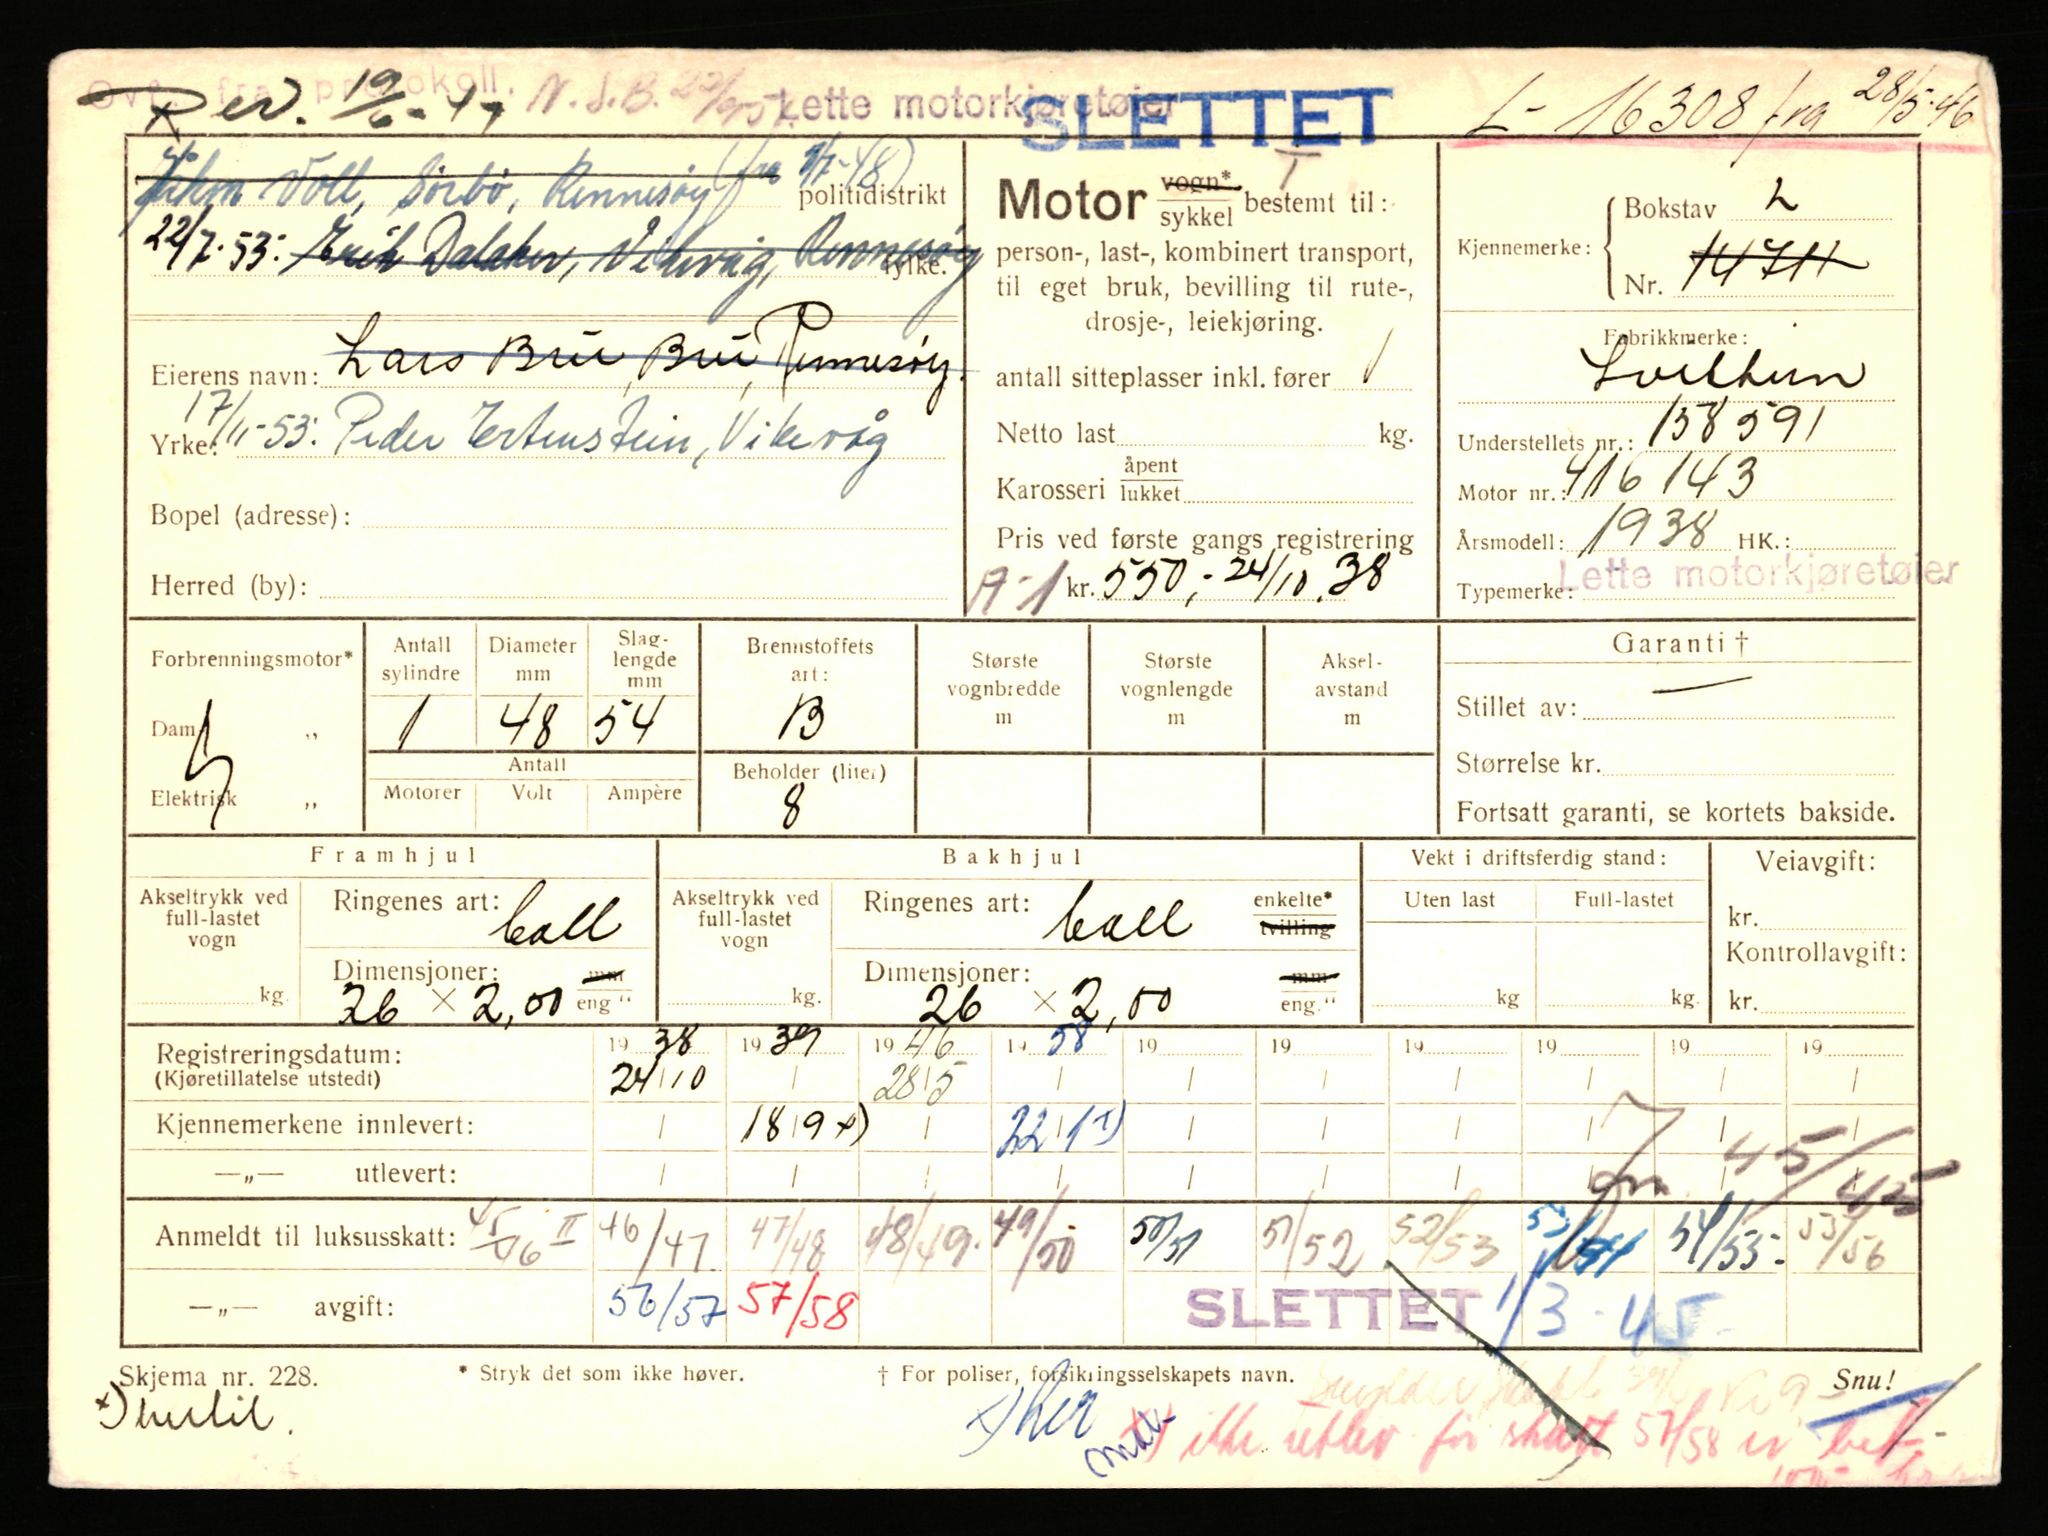 Ovf. fra protokoll.
Rev. 19/6-47 N.S.B.
Lette motorkjøretøier
SLETTET
L- 16308 fra 28/5-46
Voll, Sørbø, Rennesøy (fra 9/7-48)
politidistrikt
22/7-53: Erik Dalaker, Vikevåg, Rennesøy
fylke.
Eierens navn: Lars Bru, Bru, Rennesøy.
17/11-53: Peder Ertenstein, Vikevåg
Yrke:
Bopel (adresse):
Herred (by):
Motor vogn* sykkel bestemt til:
person-, last-, kombinert transport,
til eget bruk, bevilling til rute-,
drosje-, leiekjøring.
antall sitteplasser inkl. fører 1
Netto last kg.
Karosseri åpent lukket
Pris ved første gangs registrering
A-1 kr. 550,- 24/10.38
Kjennemerke: Bokstav L
Nr. 14711
Fabrikkmerke:
Svithun
Understellets nr.: 158591
Motor nr.: 416143
Årsmodell: 1938 HK.:
Lette motorkjøretøier
Typemerke:
Forbrenningsmotor*
Damp „
Elektrisk „
Antall sylindre
1
Diameter mm
48
Slag-lengde mm
54
Antall
Motorer Volt Ampère
Brennstoffets art:
B
Beholder (liter)
8
Største vognbredde m
Største vognlengde m
Aksel-avstand m
Garanti †
Stillet av:
Størrelse kr.
Fortsatt garanti, se kortets bakside.
Framhjul
Akseltrykk ved full-lastet vogn
kg.
Ringenes art: ball
Dimensjoner: mm
26 × 2,00 eng "
Bakhjul
Akseltrykk ved full-lastet vogn
kg.
Ringenes art: ball enkelte* tvilling
Dimensjoner: mm
26 × 2,00 eng."
Vekt i driftsferdig stand:
Uten last Full-lastet
kg kg.
Veiavgift:
kr.
Kontrollavgift:
kr.
Registreringsdatum: 1938 1939 1946 1958 19 19 19 19 19 19
(Kjøretillatelse utstedt) 24/10 / 28/5 / / / / / / /
Kjennemerkene innlevert: / 18/9 x) / 22/1 x) / / / / / /
—„— utlevert: / / / / / / / / / /
45/45
Anmeldt til luksusskatt: 45/46 II 46/47 47/48 48/49 49/50 50/51 51/52 52/53 53/54 54/55 55/56
—„— avgift: 56/57 57/58
SLETTET 1/3-45
Skjema nr. 228. * Stryk det som ikke høver. † For poliser, forsikringsselskapets navn. Snu!
x) hertil.
x) her
x) ikke utlev før skatt 57/58 er bet.